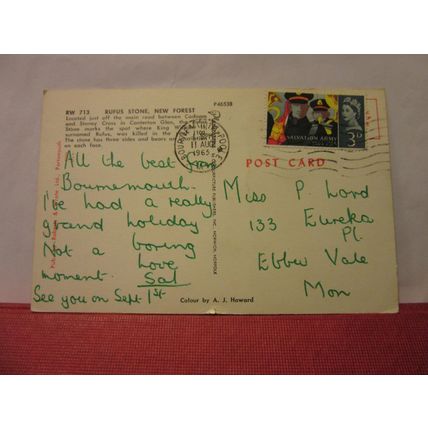 RW 713 RUFUS STONE, NEW FOREST
P46538
Located just off the main road between Cadnam
and Stoney Cross in Canterton Glen, the
Stone marks the spot where King
surnamed Rufus, was killed in the
The stone has three sides and bears an
on each face.
BOURNEMOUTH POOLE
11 AUG
1965
SALVATION ARMY
3D
POST CARD
All the best from
Bournemouth.
I've had a really
grand holiday
Not a boring
moment. Love
Sal
See you on Sept 1st
Miss P Lord
133 Eureka
Pl.
Ebbw Vale
Mon
Colour by A. J. Howard